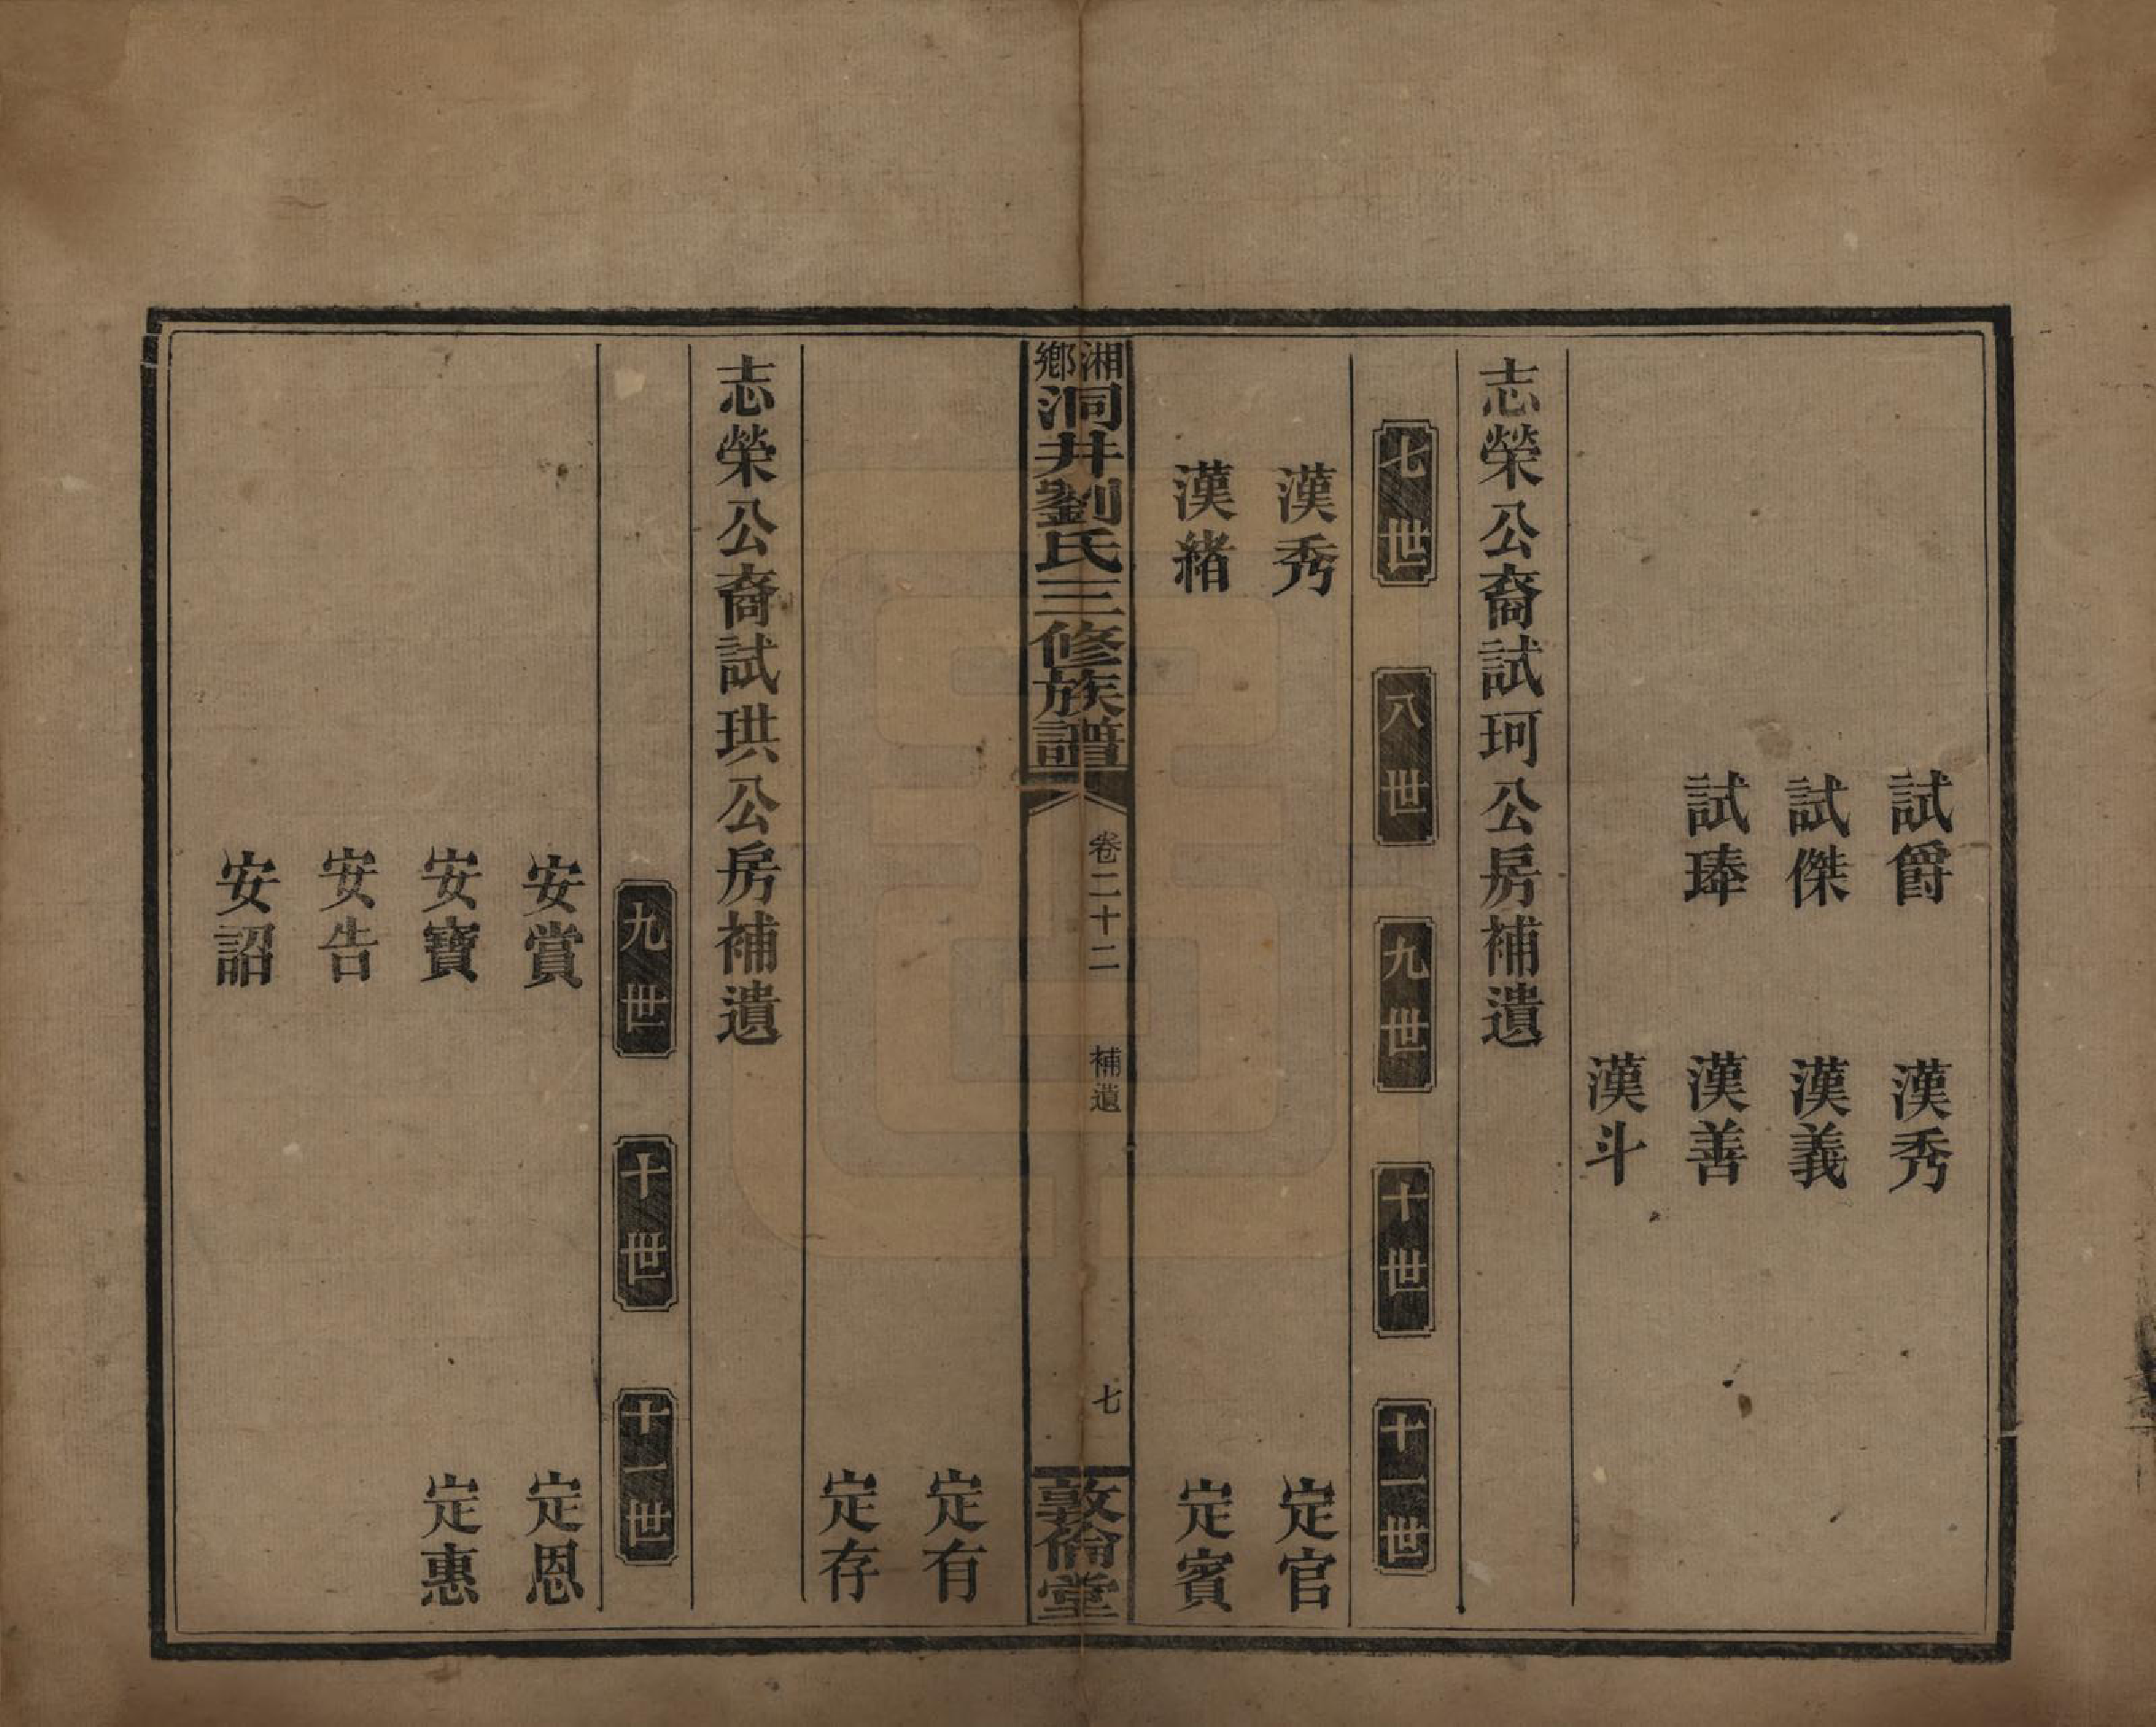 試爵 漢秀
試傑 漢義
試琫 漢善
漢斗
志榮公裔試珂公房補遺
七世 八世 九世 十世 十一世
漢秀 定官
漢緒 定賓
湘鄉洞井劉氏三修族譜 卷二十二 補遺 七 敦倫堂
定有
定存
志榮公裔試珙公房補遺
九世 十世 十一世
安賞 定恩
安寶 定惠
安告
安詔